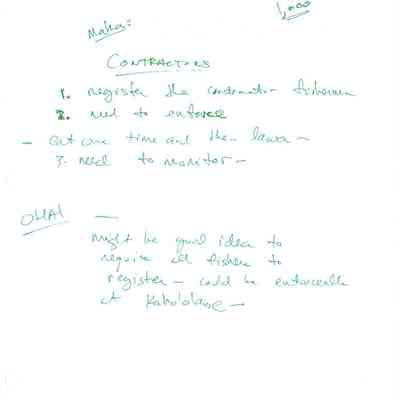 1,000
Mahor:
CONTRACTORS
1. register the fishermen
2. need to enforce
- at one time and then
3. need to monitor -
OHA! -
might be good idea to
require all fishers to
register - could be enforceable
at Kaho'olawe -